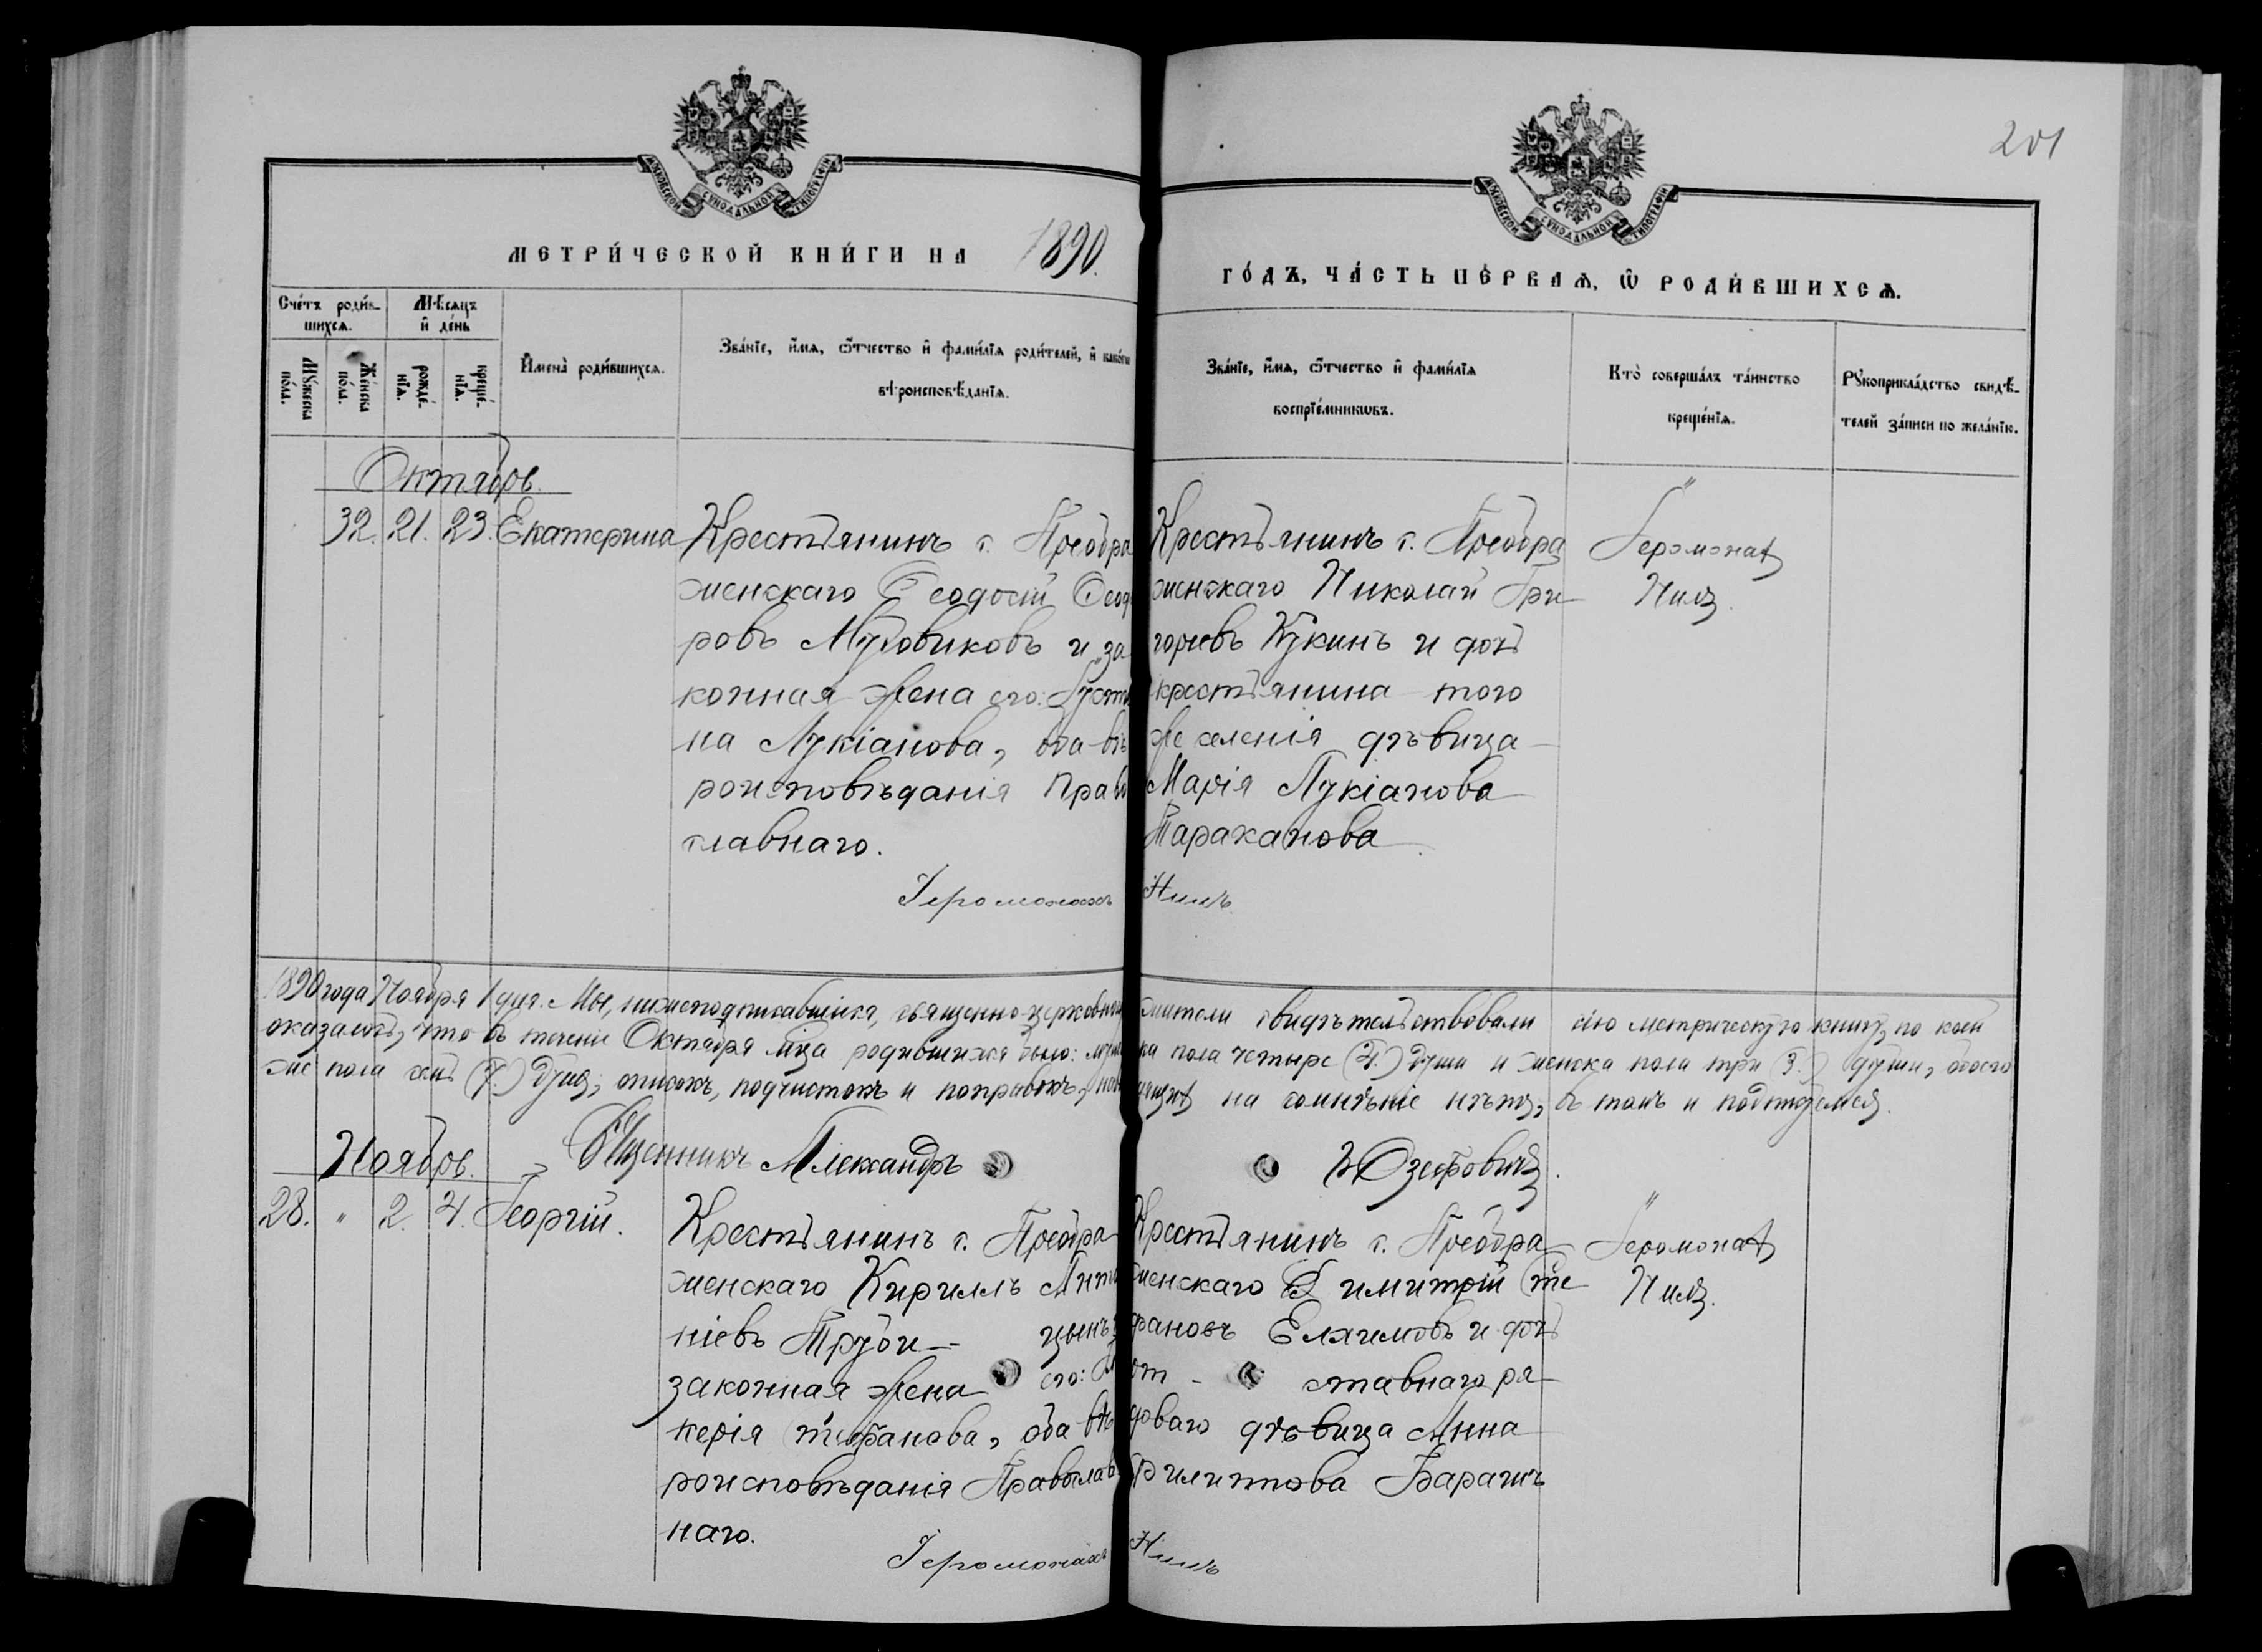 201
МОСКОВСКОЙ СѴНОДАЛЬНОЙ ТИПОГРАФІИ
МОСКОВСКОЙ СѴНОДАЛЬНОЙ ТИПОГРАФІИ
МЕТРИ́ЧЕСКОЙ КНИ́ГИ НА 1890.
ГО́ДЪ, ЧА́СТЬ ПЕ́РВАѦ, Ѡ РОДИ́ВШИХСѦ.
Сче́тъ роди́в-
шихсѧ.
Мѣсяцъ
и де́нь
Мꙋжеска
по́ла.
Же́нска
по́ла.
рожде́-
нїѧ.
креще́-
нїѧ.
Имена̀ роди́вшихсѧ.
Зва́нїе, и́мѧ, ѻ́тчество и фами́лїѧ роди́телей, и како́гѡ
вѣроисповѣ́данїѧ.
Зва́нїе, и́мѧ, ѻ́тчество и фами́лїѧ
воспрїе́мникѡвъ.
Кто̀ соверша́лъ та́инство
креще́нїѧ.
Рꙋкоприкла́дство свидѣ́-
телей за́писи по жела́нїю.
Октябрь.
32. 21. 23. Екатерина
Крестьянинъ с. Преобра
женскаго Ѳеодосій Ѳеод
ровъ Мутовиковъ и за
конная жена его: Іуст
на Лукіанова, оба вѣ
роисповѣданія Право
славнаго.
Крестьянинъ с. Преобра
женскаго Николай Гри-
горіевъ Кукинъ и дочь
крестьянина того
же селенія дѣвица
Марія Лукіанова
Тараканова
Іеромонахъ
Нилъ.
Іеромонахъ Нилъ
1890 года Ноября 1 дня. Мы, нижеподписавшіися, священно-церковнослужители свидѣтельствовали сію метрическую книгу, по коей
оказалось, что въ теченіе Октября м̃ца родившихся было: мужеска пола четыре (4.) души и женска пола три (3.) души, обоего
же пола семь (7.) душъ, описокъ, подчистокъ и поправокъ, наводящихъ на сомнѣніе нѣтъ, въ томъ и подпишемся.
Сщ҃енникъ Александръ Юзефовичъ.
Ноябрь.
28. " 2. 4. Георгій.
Крестьянинъ с. Преобра
женскаго Кириллъ Анто
ніевъ Труби- цынъ
законная жена его:
керія Стефанова, оба вѣ
роисповѣданія Православ
наго.
Крестьянинъ с. Преобра-
женскаго Димитрій Сте
фановъ Елхимовъ и дочь
от - ставнаго ря-
доваго дѣвица Анна
Филиппова
Іеромонахъ
Нилъ.
Іеромонахъ Нилъ